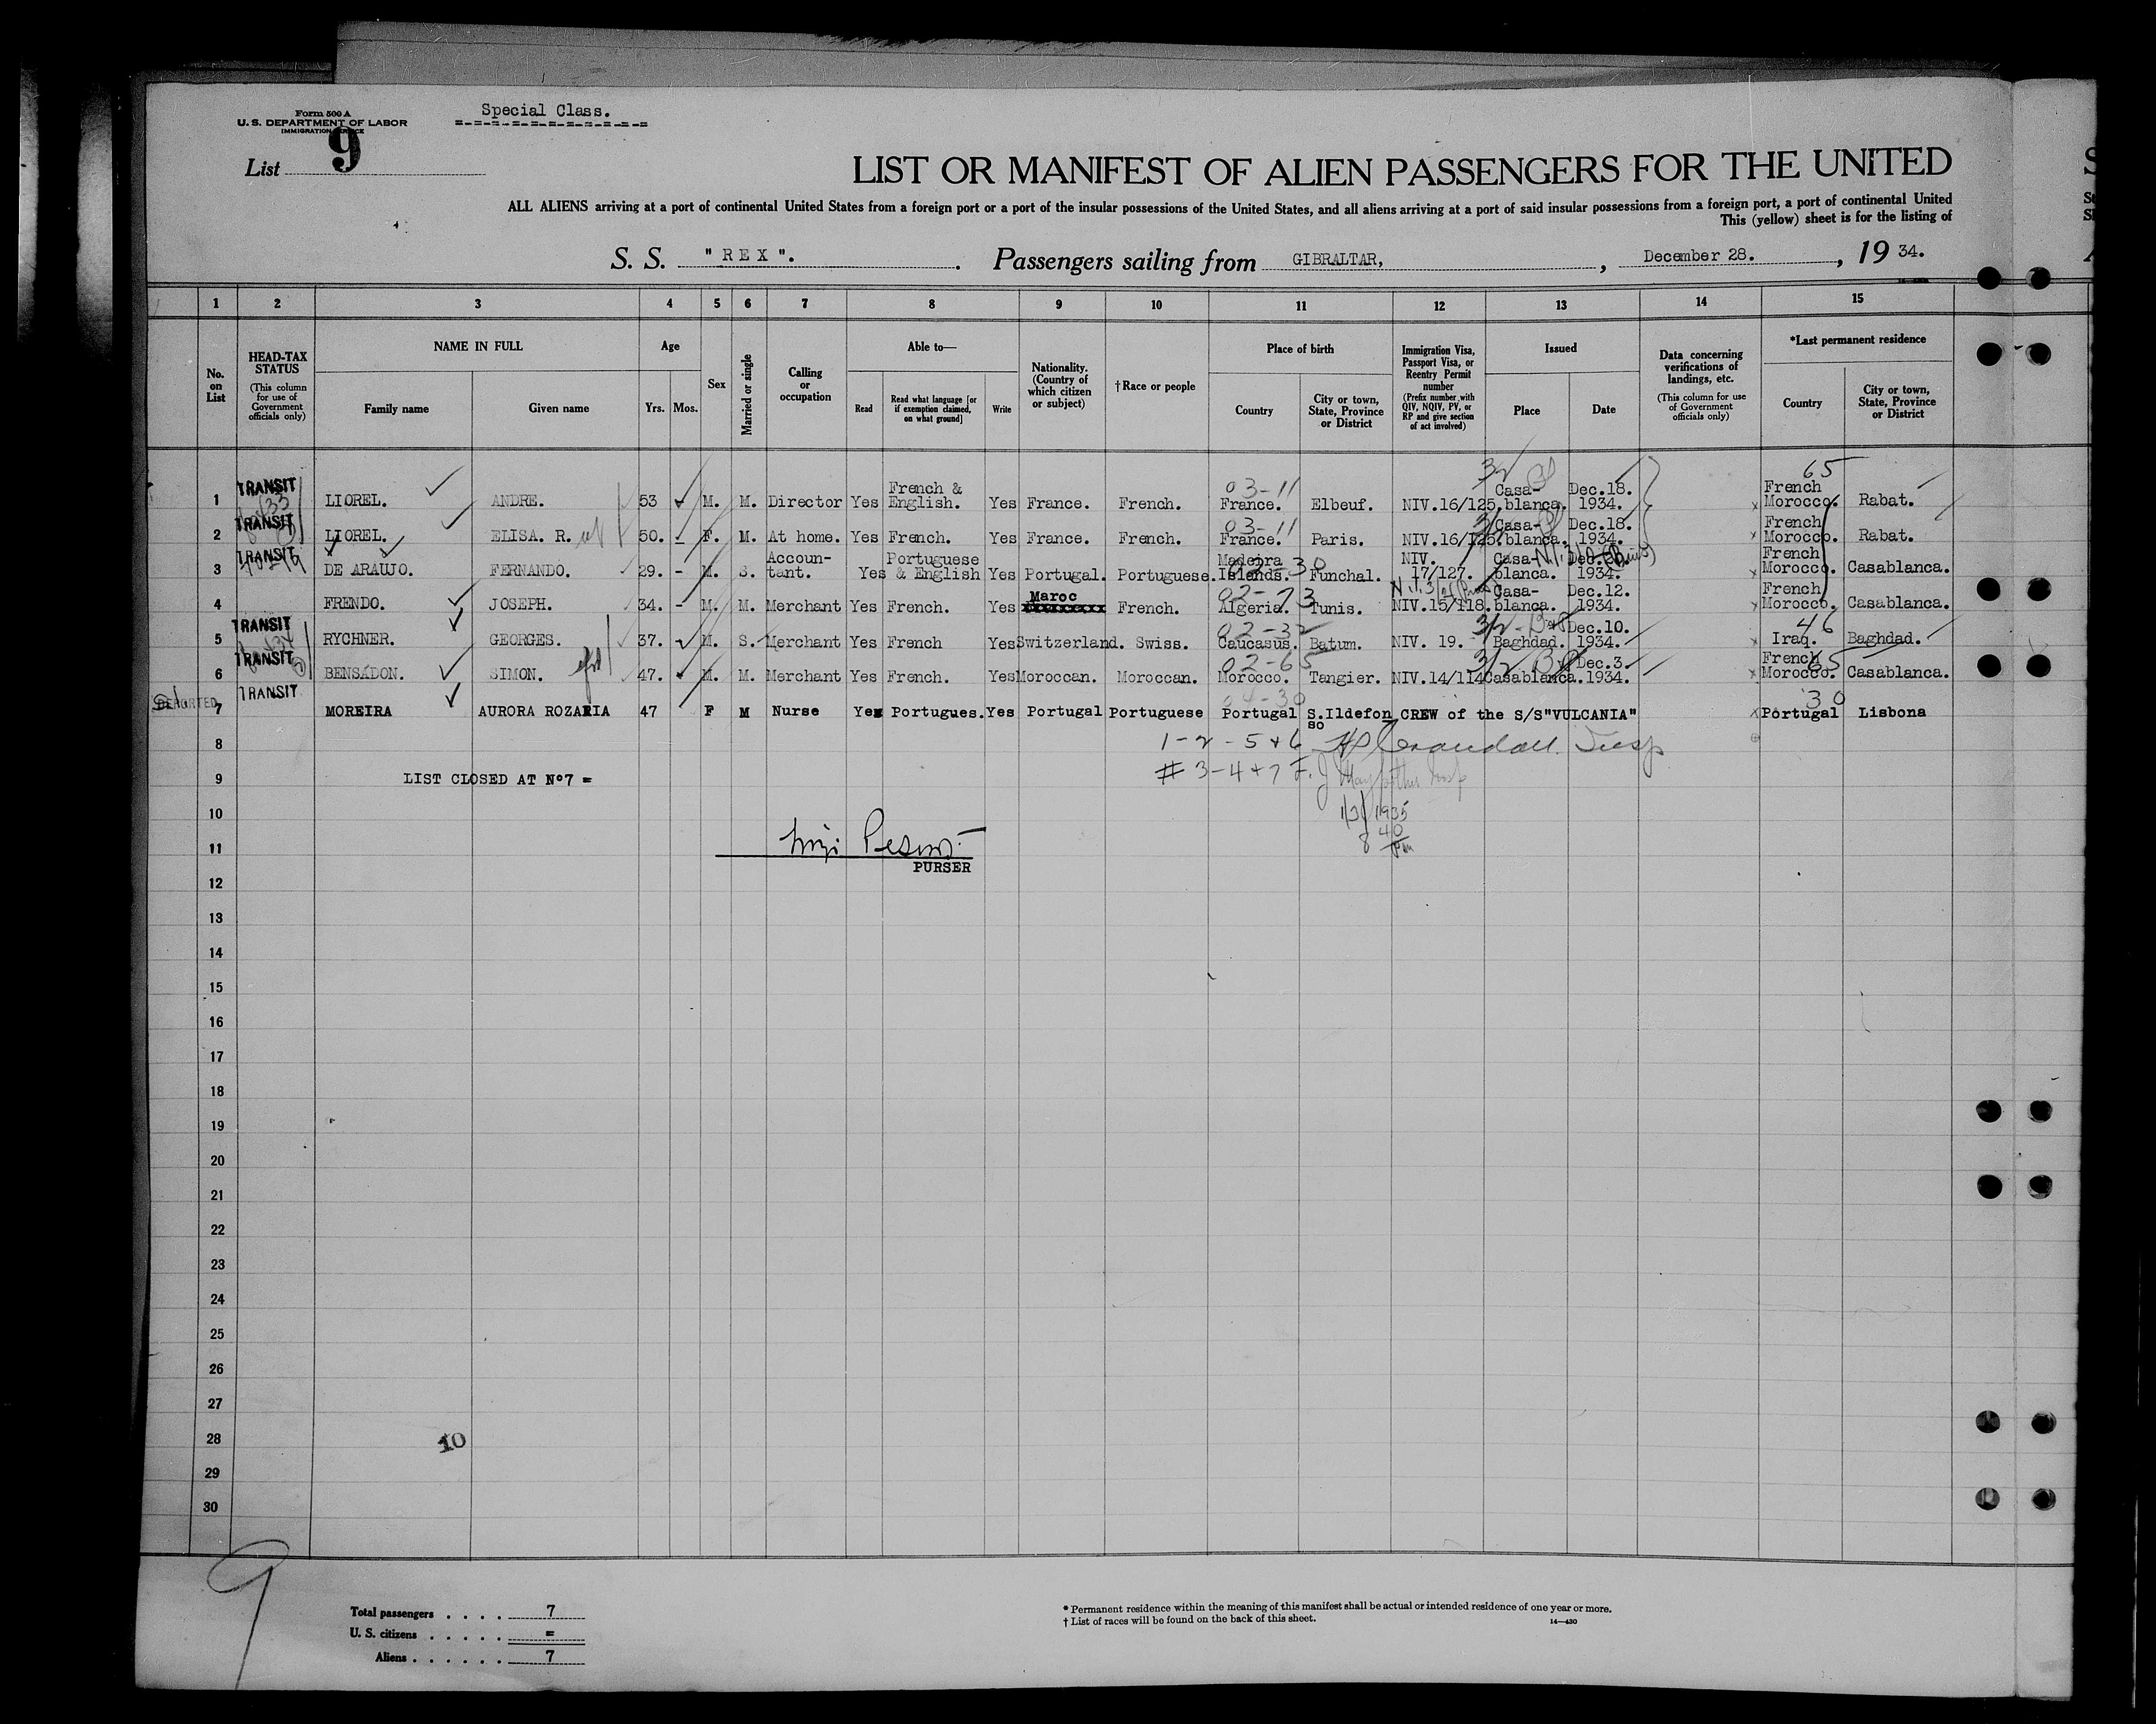 Form 500 A
U. S. DEPARTMENT OF LABOR
IMMIGRATION SERVICE
Special Class.
List 9
LIST OR MANIFEST OF ALIEN PASSENGERS FOR THE UNITED
ALL ALIENS arriving at a port of continental United States from a foreign port or a port of the insular possessions of the United States, and all aliens arriving at a port of said insular possessions from a foreign port, a port of continental United
This (yellow) sheet is for the listing of
S. S. "REX". Passengers sailing from GIBRALTAR, December 28. , 19 34.
1 2 3 4 5 6 7 8 9 10 11 12 13 14 15
No. on List
HEAD-TAX STATUS (This column for use of Government officials only)
NAME IN FULL
Family name Given name
Age
Yrs. Mos.
Sex
Married or single
Calling or occupation
Able to—
Read Read what language [or if exemption claimed, on what ground] Write
Nationality. (Country of which citizen or subject)
† Race or people
Place of birth
Country City or town, State, Province or District
Immigration Visa, Passport Visa, or Reentry Permit number (Prefix number with QIV, NQIV, PV, or RP and give section of act involved)
Issued
Place Date
Data concerning verifications of landings, etc. (This column for use of Government officials only)
*Last permanent residence
Country City or town, State, Province or District
1 TRANSIT LIOREL. ANDRE. 53 M. M. Director Yes French & English. Yes France. French. 03-11 France. Elbeuf. NIV.16/125. Casa-blanca. Dec.18. 1934. 65 French Morocco. Rabat.
2 TRANSIT LIOREL. ELISA. R. 50. - F. M. At home. Yes French. Yes France. French. 03-11 France. Paris. NIV.16/125. Casa-blanca. Dec.18. 1934. French Morocco. Rabat.
3 TRANSIT DE ARAUJO. FERNANDO. 29. - M. S. Accoun-tant. Yes Portuguese & English Yes Portugal. Portuguese. Madeira Islands. Funchal. NIV. 17/127. Casa-blanca. 1934. French Morocco. Casablanca.
4 FRENDO. JOSEPH. 34. - M. M. Merchant Yes French. Yes Maroc French. Algeria. Tunis. NIV.15/118. Casa-blanca. Dec.12. 1934. French Morocco. Casablanca.
5 TRANSIT RYCHNER. GEORGES. 37. M. S. Merchant Yes French Yes Switzerland. Swiss. 02-32 Caucasus. Batum. NIV. 19. Baghdad. Dec.10. 1934. 46 Iraq. Baghdad.
6 TRANSIT BENSADON. SIMON. 47. M. M. Merchant Yes French. Yes Moroccan. Moroccan. 02-65 Morocco. Tangier. NIV.14/114 Casablanca. Dec.3. 1934. 65 French Morocco. Casablanca.
DEPORTED 7 TRANSIT MOREIRA AURORA ROZARIA 47 F M Nurse Yes Portugues. Yes Portugal Portuguese Portugal S.Ildefonso CREW of the S/S"VULCANIA" 30 Portugal Lisbona
8 1-2-5+6
9 LIST CLOSED AT Nº7 = # 3-4+7
10 1935
11 8 40 Pm
PURSER
12
13
14
15
16
17
18
19
20
21
22
23
24
25
26
27
28 10
29
30
9
Total passengers . . . . 7
U. S. citizens . . . . . =
Aliens . . . . . . 7
* Permanent residence within the meaning of this manifest shall be actual or intended residence of one year or more.
† List of races will be found on the back of this sheet. 14—430